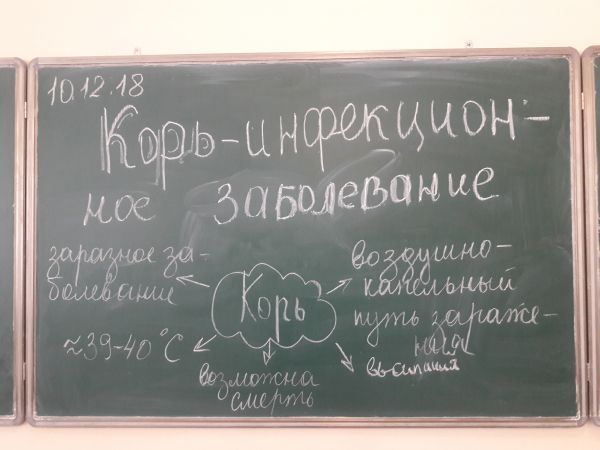 10.12.18
Корь-инфекцион-
ное заболевание
заразное за-
болевание
Корь
воздушно-
капельный
путь зараже-
ния
≈39-40°С
возможна
смерть
высыпания